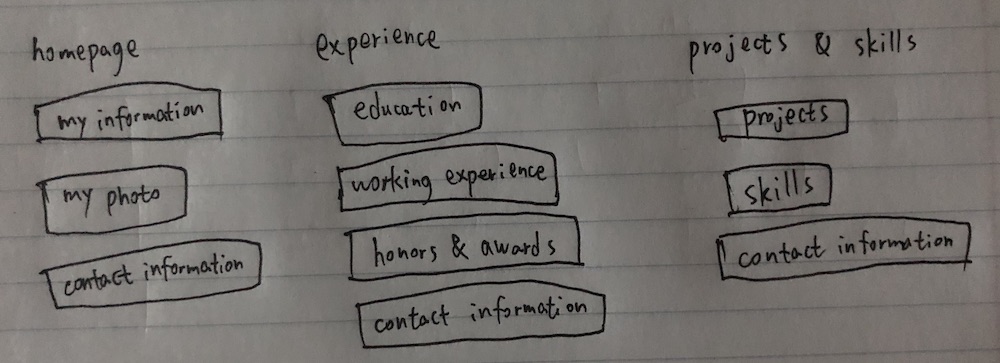 homepage
my information
my photo
contact information
experience
education
working experience
honors & awards
contact information
projects & skills
projects
skills
contact information